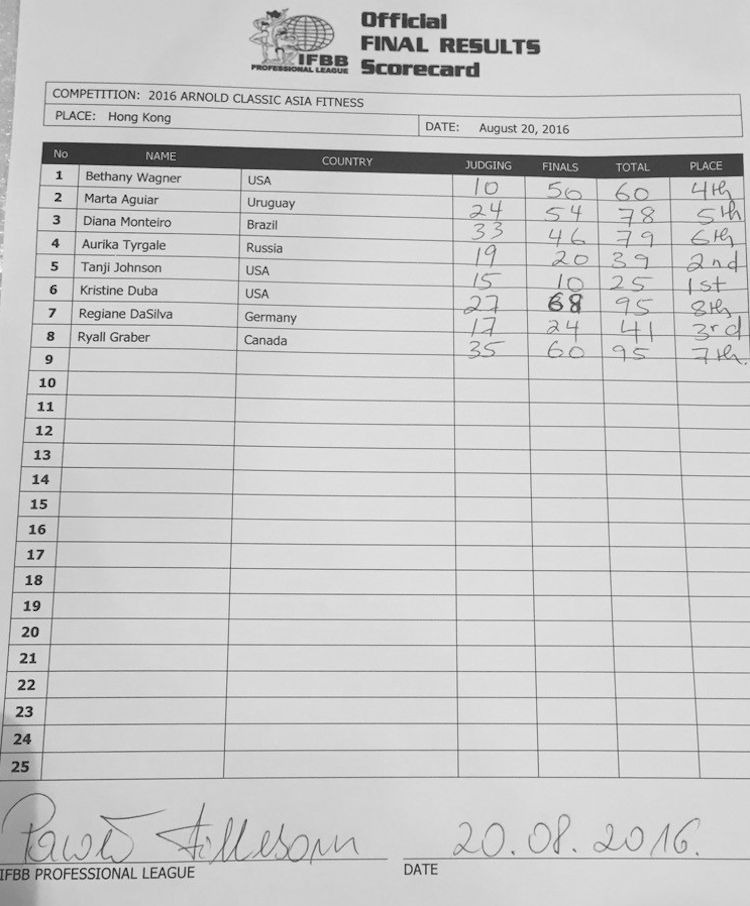 Official
FINAL RESULTS
Scorecard
IFBB
PROFESSIONAL LEAGUE
COMPETITION: 2016 ARNOLD CLASSIC ASIA FITNESS
PLACE: Hong Kong DATE: August 20, 2016
No NAME COUNTRY JUDGING FINALS TOTAL PLACE
1 Bethany Wagner USA 10 50 60 4th
2 Marta Aguiar Uruguay 24 54 78 5th
3 Diana Monteiro Brazil 33 46 79 6th
4 Aurika Tyrgale Russia 19 20 39 2nd
5 Tanji Johnson USA 15 10 25 1st
6 Kristine Duba USA 27 68 95 8th
7 Regiane DaSilva Germany 17 24 41 3rd
8 Ryall Graber Canada 35 60 95 7th
9
10
11
12
13
14
15
16
17
18
19
20
21
22
23
24
25
20.08.2016.
IFBB PROFESSIONAL LEAGUE DATE